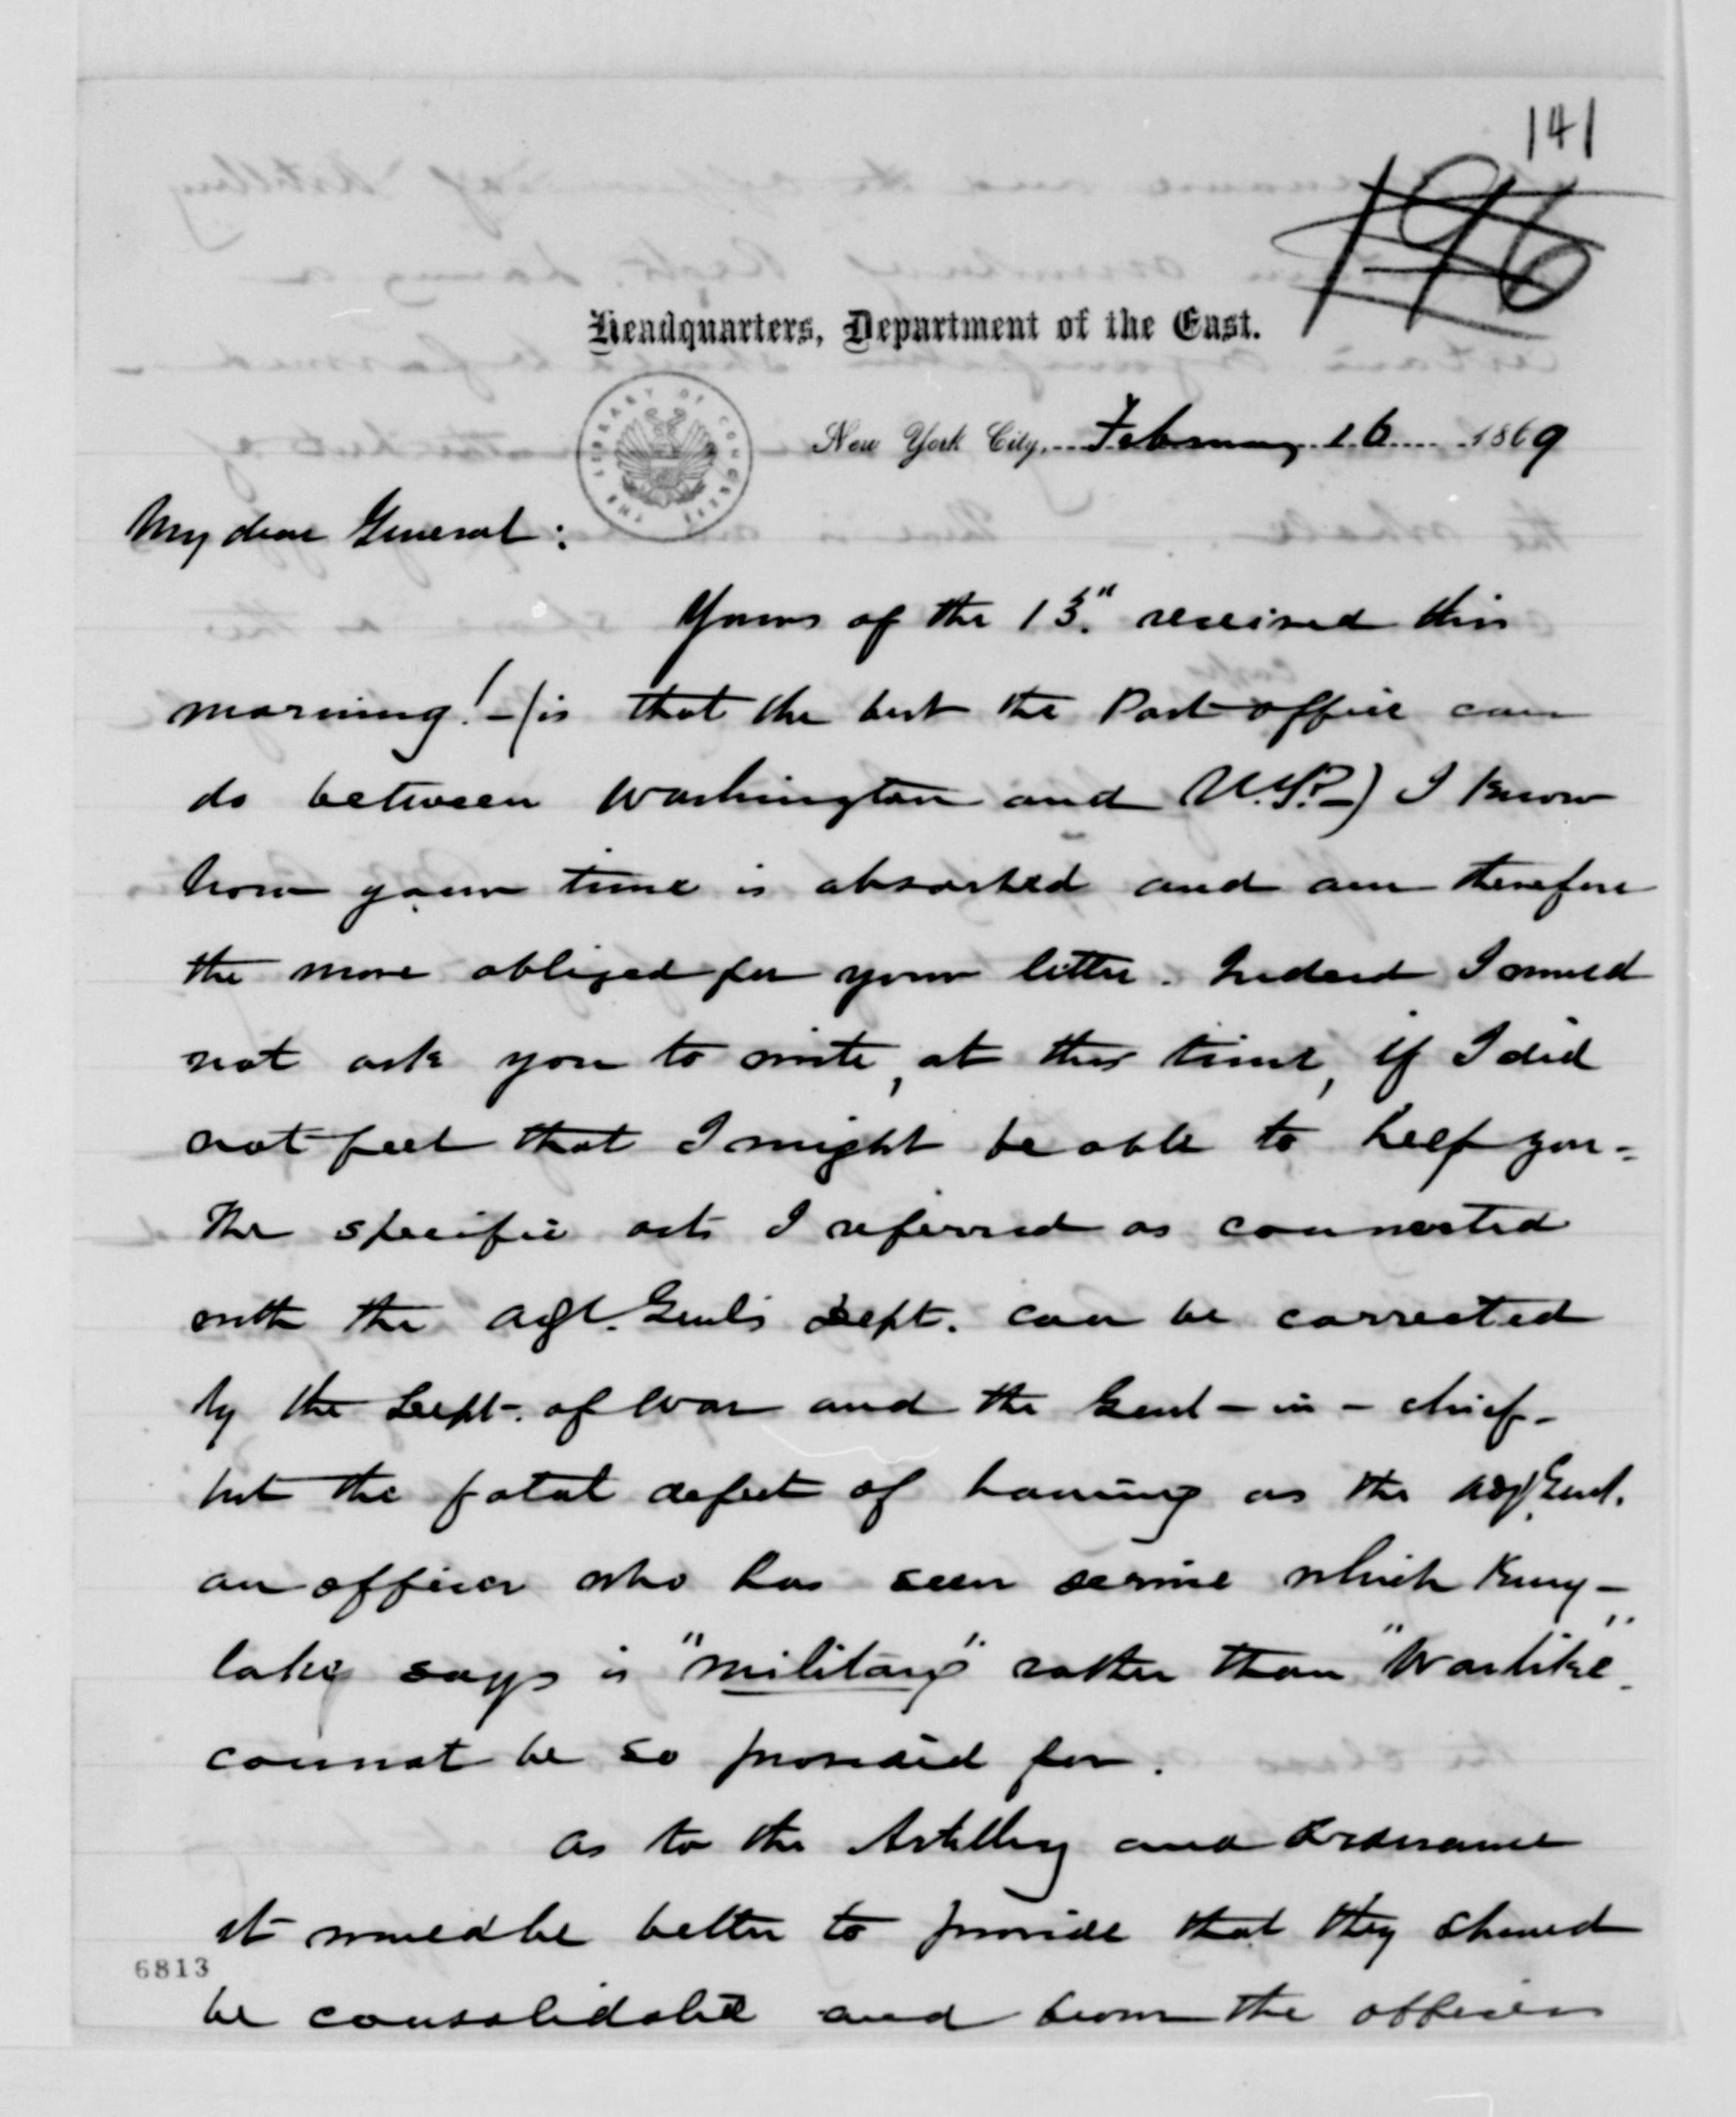 141
196
Headquarters, Department of the East.
THE LIBRARY OF CONGRESS
New York City, February 16 1869
My dear General:
Yours of the 13." received this
morning! - (is that the best the Post office can
do between Washington and N.Y.?-) I know
how your time is absorbed and am therefore
the more obliged for your letter. Indeed I would
not ask you to write, at this time, if I did
not feel that I might be able to help you -
The specific acts I referred as connected
with the Adjt. Genl's Dept. can be corrected
by the Dept. of War and the Genl - in - chief -
but the fatal defect of having as the Adjt Genl.
an officer who has seen service which King-
lake says is "military" rather than "Warlike"
cannot be so provided for.
As to the Artillery and Ordnance
it would be better to provide that they should
6813
be consolidated and from the officers